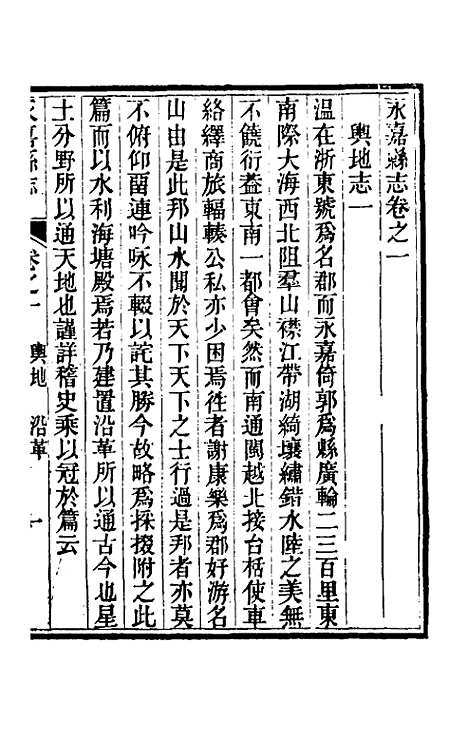 永嘉縣志卷之一
輿地志一
溫在浙東號爲名郡而永嘉倚郭爲縣廣輪二三百里東
南際大海西北阻羣山襟江帶湖綺壤繡錯水陸之美無
不饒衍葢東南一都會矣然而南通閩越北接台栝使車
絡繹商旅輻輳公私亦少困焉徃者謝康樂爲郡好游名
山由是此邦山水聞於天下天下之士行過是邦者亦莫
不俯仰畱連吟咏不輟以詫其勝今故略爲採掇附之此
篇而以水利海塘殿焉若乃建置沿革所以通古今也星
土分野所以通天地也謹詳稽史乘以冠於篇云
永嘉縣志 卷之一 輿地 沿革 一